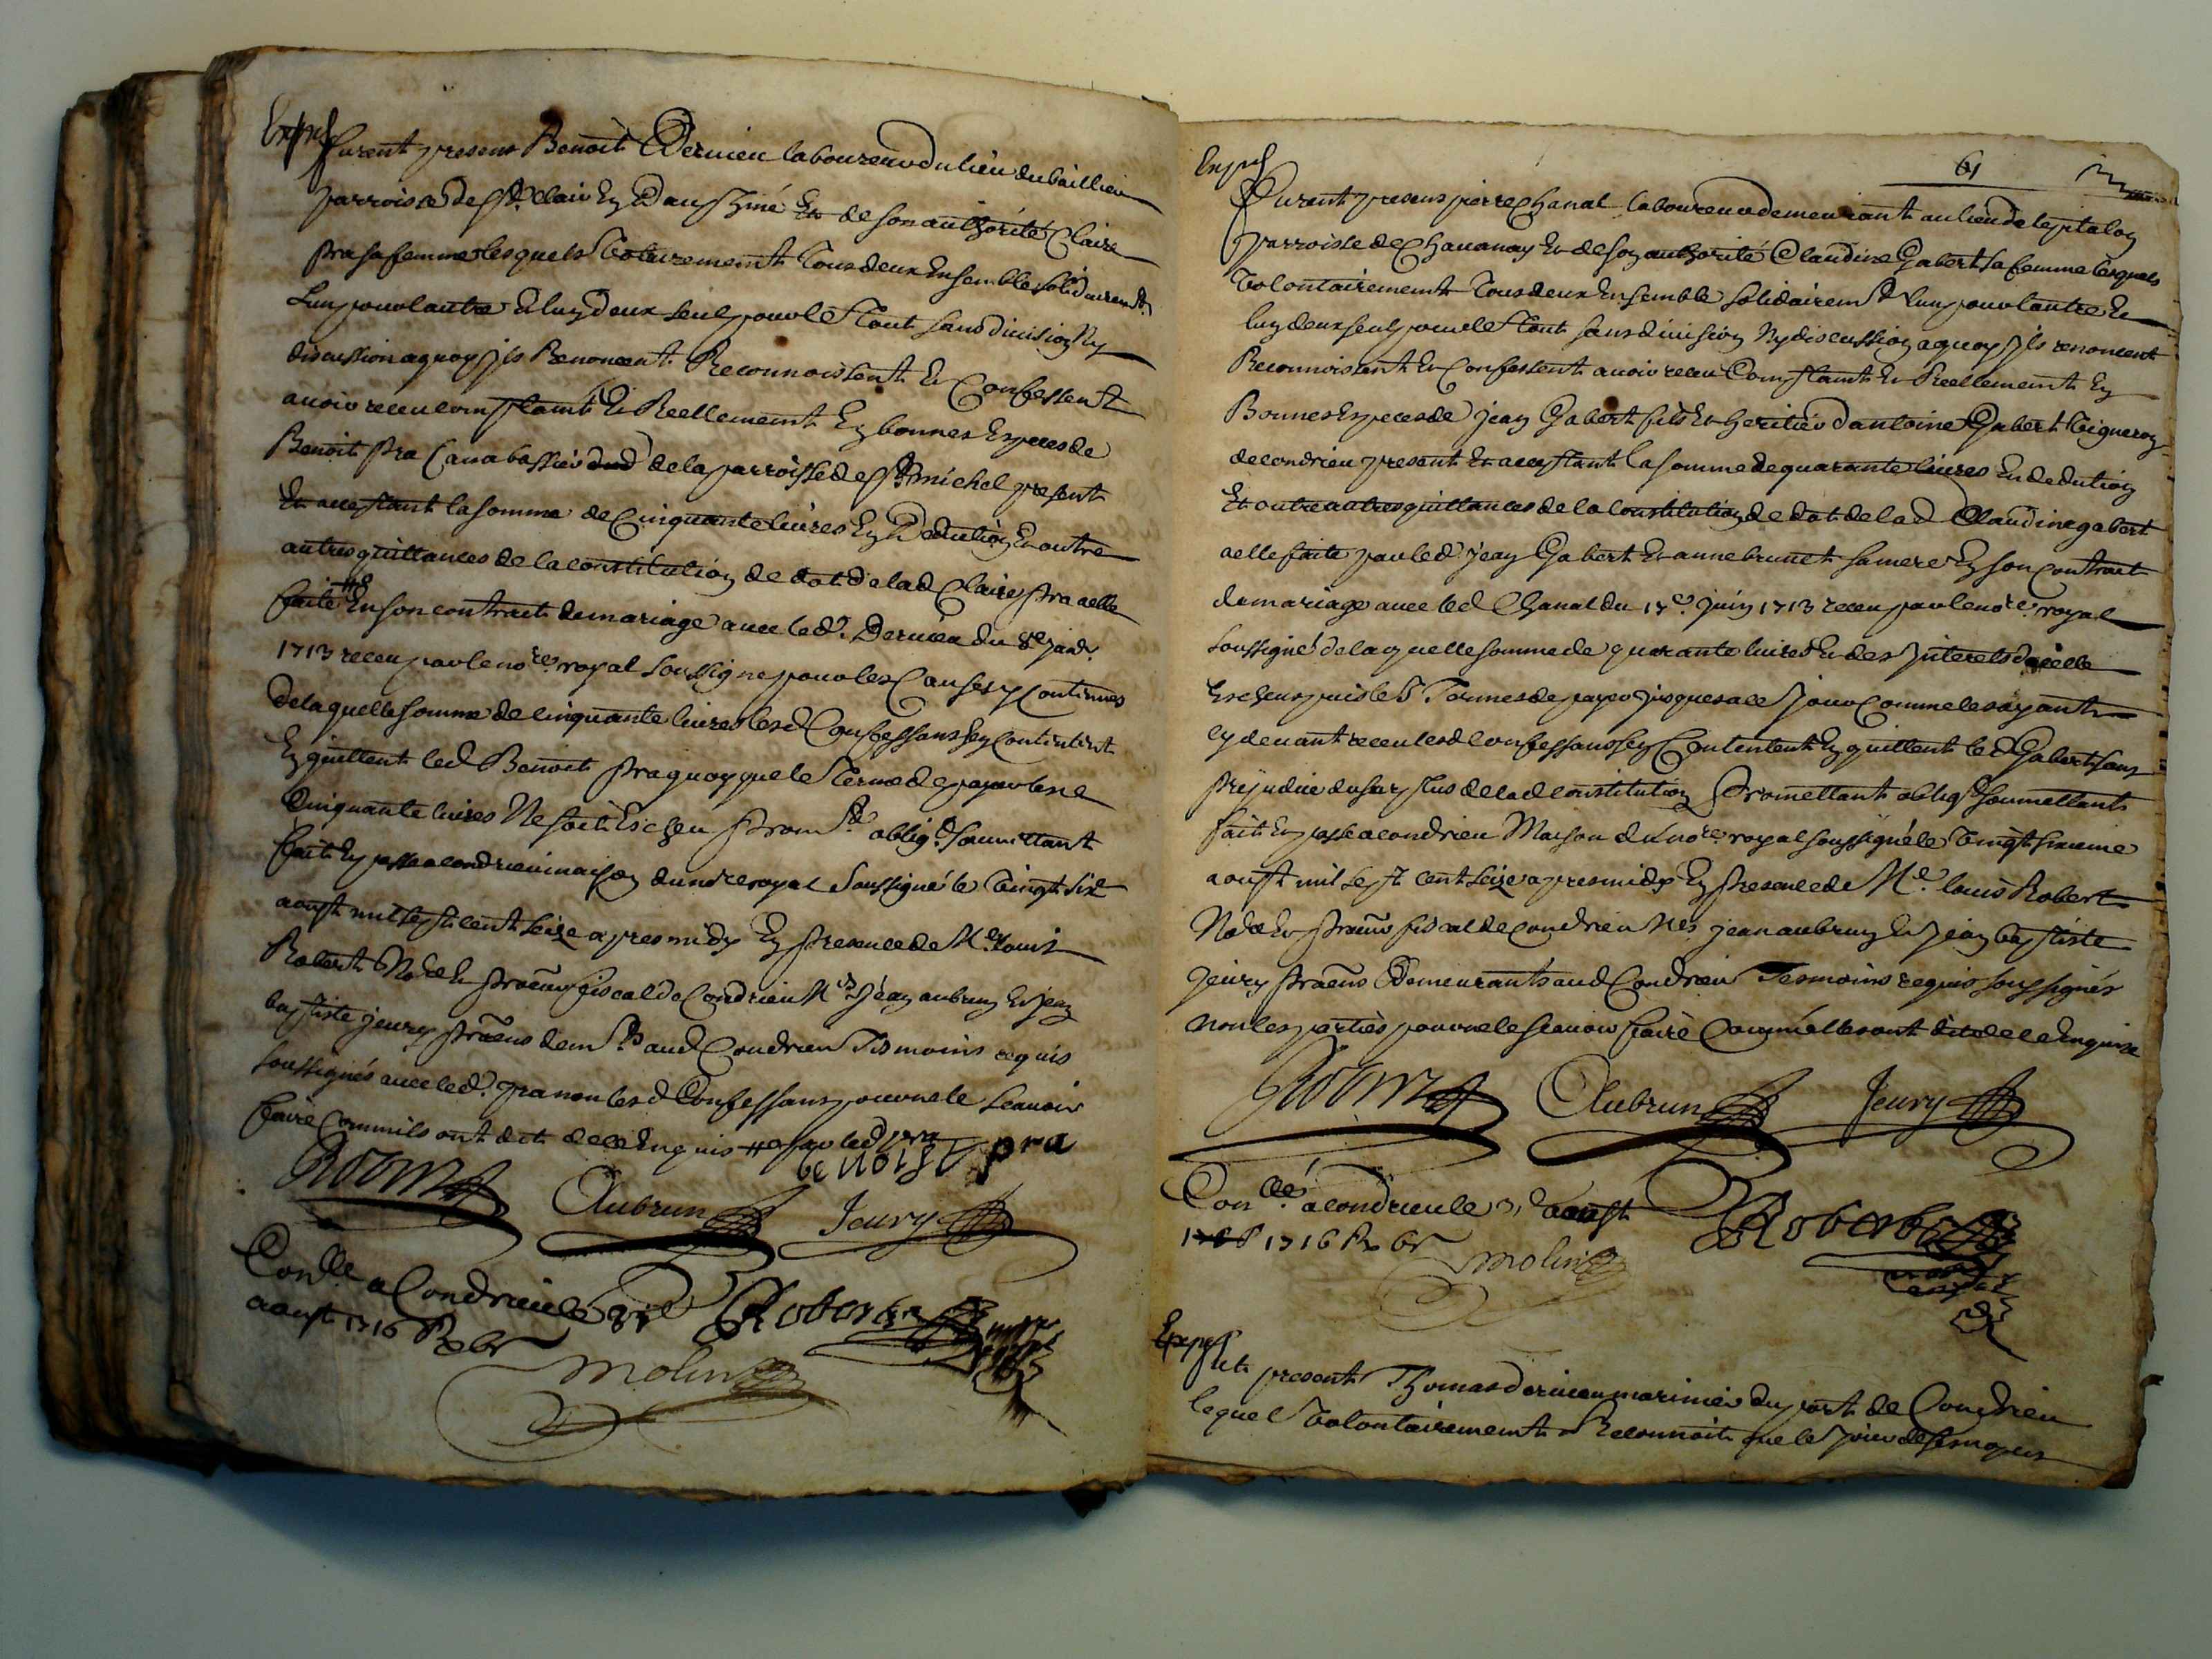 Exp.
furent presens Benoit Dervieu laboureur du lieu du baillieu
parroisse de St. clair En Dauphiné Et de son authorité Claire
pra sa femme lesquels Volairement Tous deux Ensemble solidairemt.
Lun pour lautre Et luy deux seul pour le Tout sans division Ny
discussion a quoy Ils Renoncent Reconnoissent Et Confessent
avoir receu comptant Et Reellement En bonnes Especes de
Benoit pra Canabassier de la parroisse de St. michel present
Et acceptant la somme de Cinquante livres En Dedution Et outre
autres quittances de la constitution de dot de lad Claire pra a elle
faite # En son contract de mariage avec led. Dervieu du 8e janv.
1713 receu par le nore. royal Soussigné pour les Causes y Contenues
de laquelle somme de cinquante livres lesd Confessans sen Contentent
En quittent led Benoit pra quoy que le Terme de payer lesd
Cinquante livres Ne soit Escheu prom. oblig. soumettant
fait En passé a condrieu maison du nore royal Soussigné le Vingt six
aoust mil sept cent seize apres midy En presence de Me. Louis
Robert Nore Et procur. fiscal de Condrieu Mes. Jean aubrun Et Jean
baptiste jeury praens demts. aud Condrieu Tesmoins requis
soussignés avec led. pra non lesd Confessans pour ne le scavoir
faire Comm'ils ont dit de ce Enquis # par led pra
benoist pra
Robert
Aubrun
Jeury
Conlle a Condrieu le 31e
aoust 1716 R 6s
Robert
molin
61
Exp.
furent presens pierre Chanal laboureur demeurant au lieu de leptalon
parroisse de Chavanay Et de son authorité Claudine Gabert sa femme lesquels
Volontairement Tous deux Ensemble solidairemt. lun pour lautre Et
luy deux seul pour le Tout sans division Ny discussion a quoy Ils renoncent
Reconnoissent Et Confessent avoir receu Comptant Et Reellement En
Bonnes Especes de jean Gabert fils Et heritier dantoine Gabert Vigneron
de condrieu present Et acceptant la somme de quarante livres En dedution
Et outre autres quittances de la constitution de dot de lad Claudine gabert
a elle faite par led jean Gabert Et anne brunet sa mere En son contract
de mariage avec led Chanal du 17e. juin 1713 receu par le nore. royal
soussigné de laquelle somme de quarante livres Et des Interets dicelle
Escheus puis les Termes de payer jusques a ce Jour Comme les ayant
cy devant receu lesd confessans sen Contentent En quittent led Gabert sans
prejudice du surplus de lad constitution promettant oblig. soumettants
fait En passé a condrieu Maison du nore. royal soussigné le Vingt sixieme
aoust mil sept cent seize apres midy En presence de Me. louis Robert
Nore Et procur. fiscal de Condrieu Mes. jean aubrun Et Jean baptiste
jeury praens Demeurants aud Condrieu Tesmoins requis soussignés
non les parties pour ne le scavoir faire Comm'elles ont dit de ce Enquise
Robert
Aubrun
Jeury
Conlle. a condrieu le 31e aoust
1716 R 6s
molin
Robert
Exp.
fut present Thomas dervieu marinier du port de Condrieu
lequel Volontairement Reconnoit que le Jour de